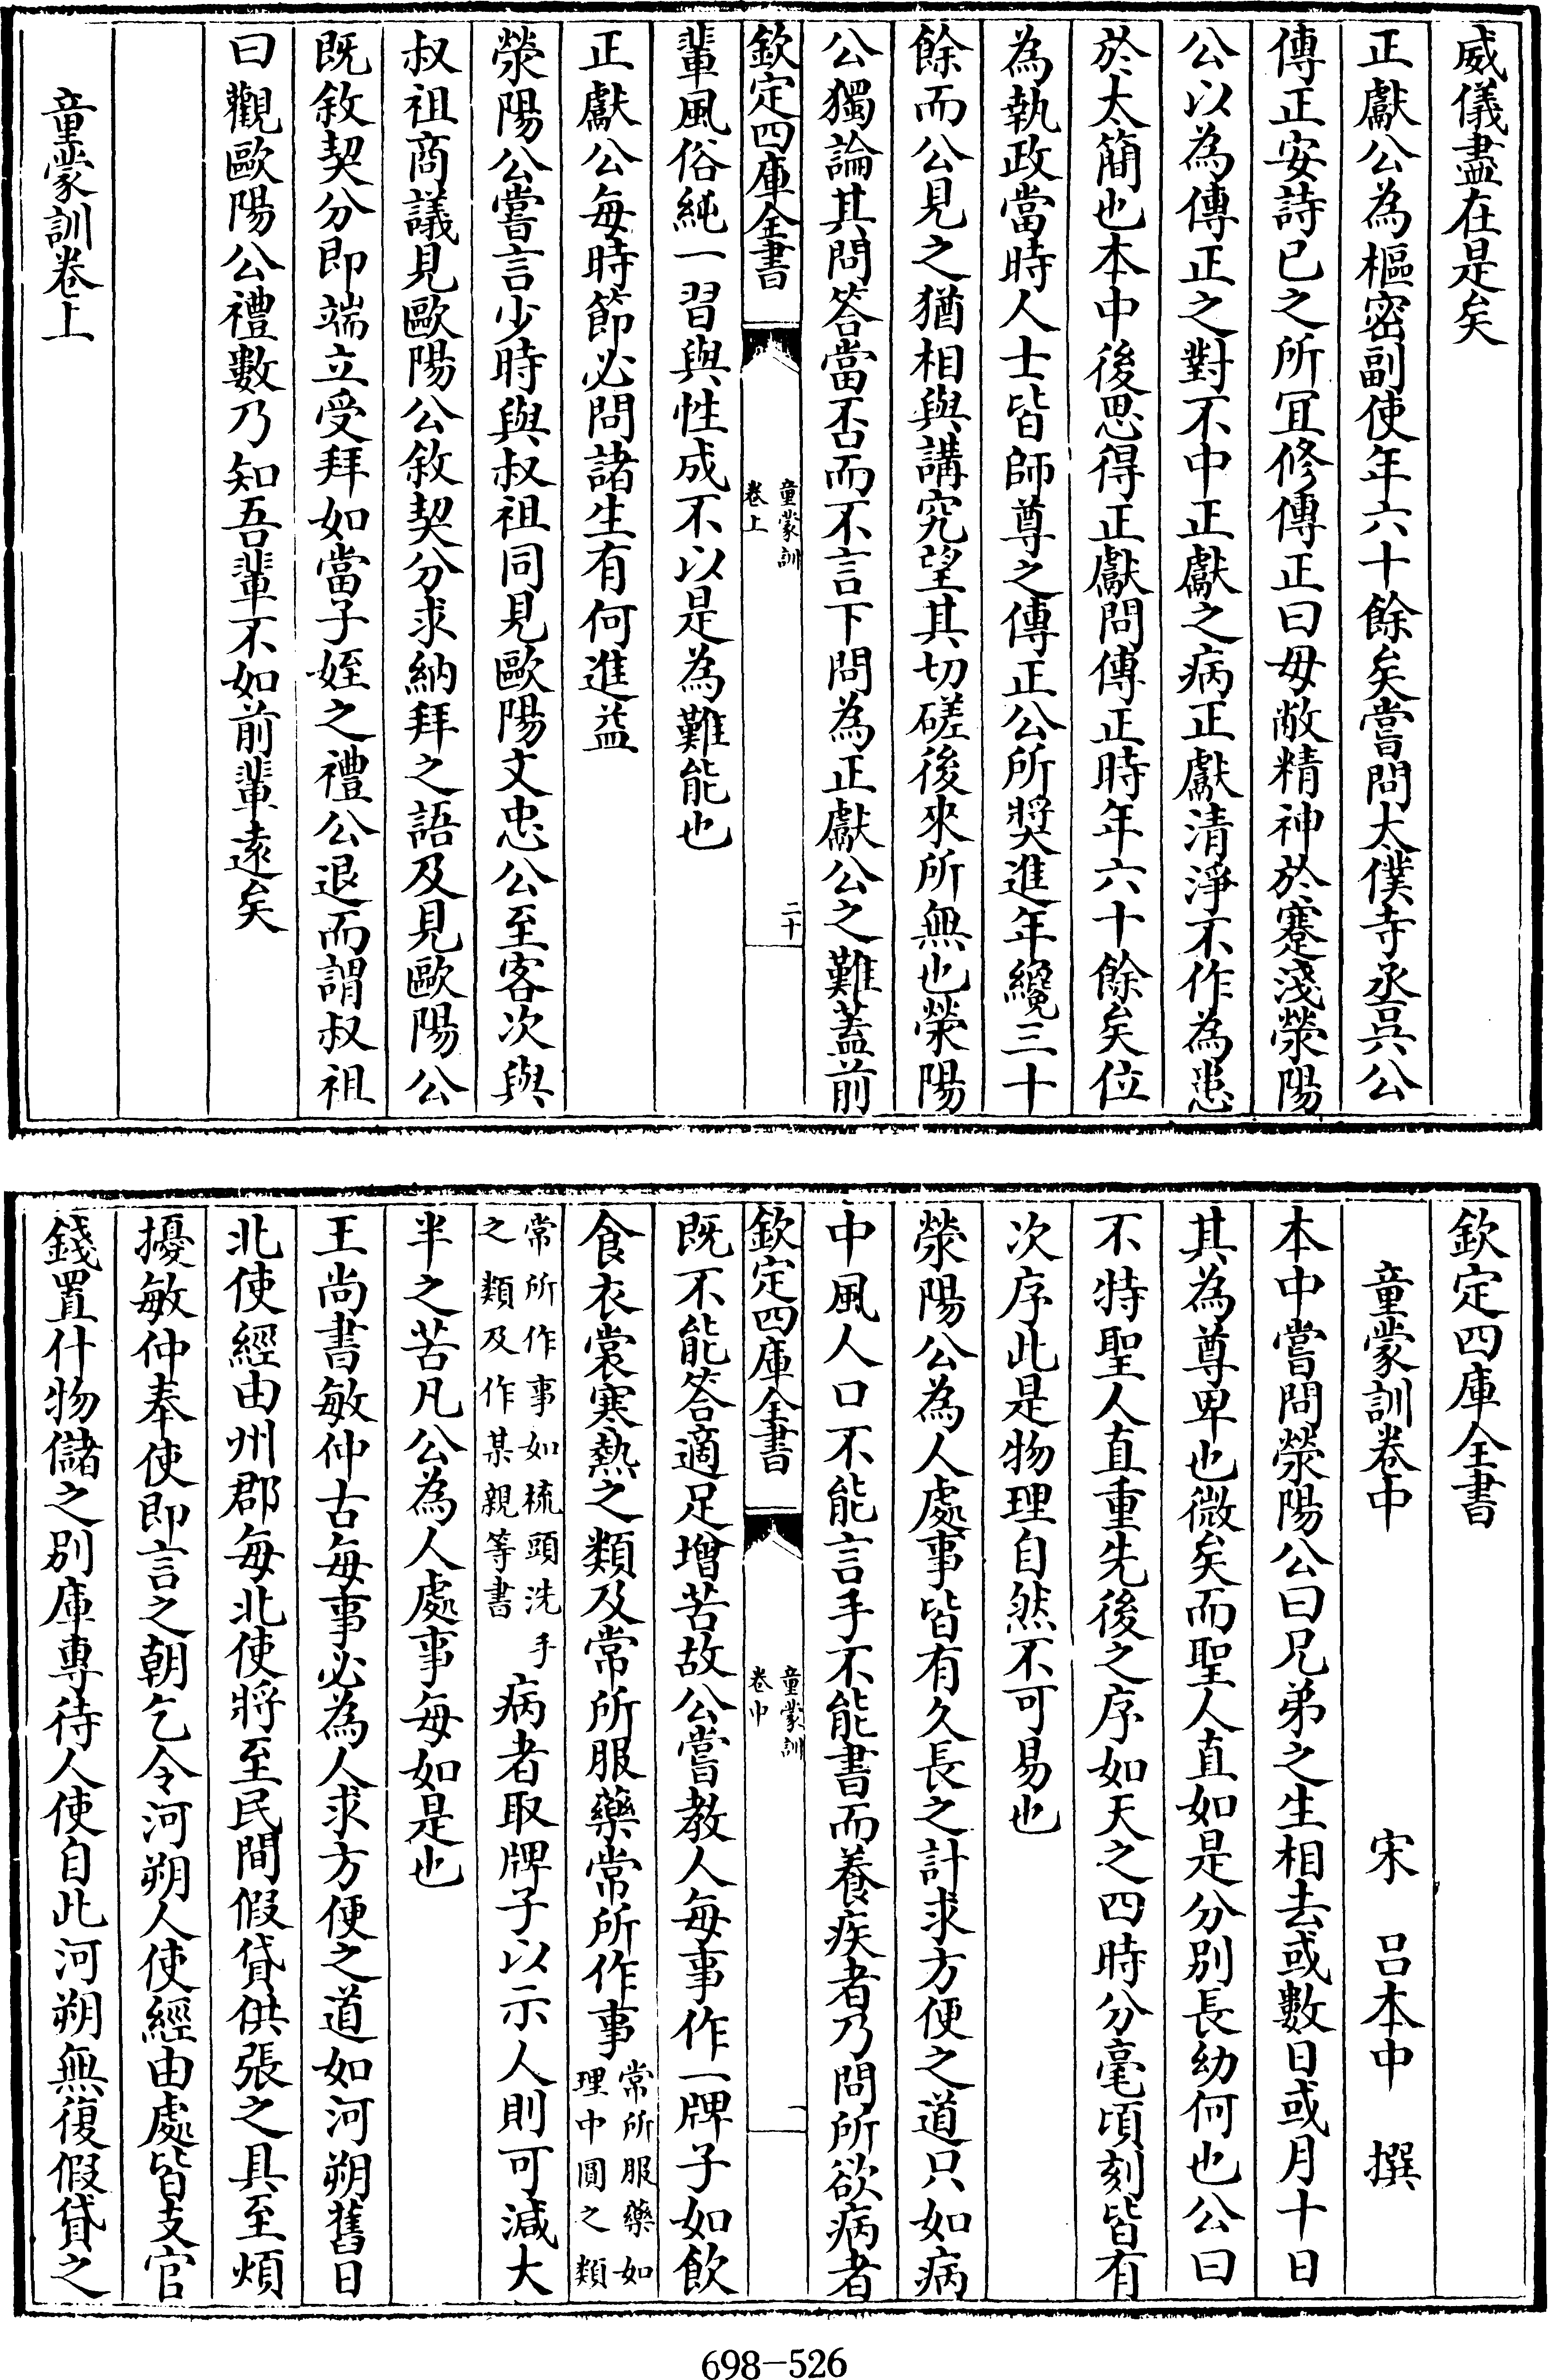 威儀盡在是矣
正獻公為樞密副使年六十餘矣嘗問太僕寺丞吳公
傳正安詩已之所宜修傳正曰毋敝精神於蹇淺滎陽
公以為傳正之對不中正獻之病正獻清淨不作為患
於太簡也本中後思得正獻問傳正時年六十餘矣位
為執政當時人士皆師尊之傳正公所奬進年纔三十
餘而公見之猶相與講究望其切磋後來所無也滎陽
公獨論其問答當否而不言下問為正獻公之難蓋前
欽定四庫全書
童蒙訓
卷上
二十
輩風俗純一習與性成不以是為難能也
正獻公每時節必問諸生有何進益
滎陽公嘗言少時與叔祖同見歐陽文忠公至客次與
叔祖商議見歐陽公敘契分求納拜之語及見歐陽公
既敘契分即端立受拜如當子姪之禮公退而謂叔祖
曰觀歐陽公禮數乃知吾輩不如前輩遠矣
童蒙訓卷上
欽定四庫全書
童蒙訓卷中
宋 呂本中 撰
本中嘗問滎陽公曰兄弟之生相去或數日或月十日
其為尊卑也微矣而聖人直如是分別長幼何也公曰
不特聖人直重先後之序如天之四時分毫頃刻皆有
次序此是物理自然不可易也
滎陽公為人處事皆有久長之計求方便之道只如病
中風人口不能言手不能書而養疾者乃問所欲病者
欽定四庫全書
童蒙訓
卷中
一
既不能答適足增苦故公嘗教人每事作一牌子如飲
食衣裳寒熱之類及常所服藥常所作事常所服藥如
理中圓之類
常所作事如梳頭洗手
之類及作某親等書
病者取牌子以示人則可減大
半之苦凡公為人處事每如是也
王尚書敏仲古每事必為人求方便之道如河朔舊日
北使經由州郡每北使將至民間假貸供張之具至煩
擾敏仲奉使即言之朝乞令河朔人使經由處皆支官
錢置什物儲之別庫專待人使自此河朔無復假貸之
698-526